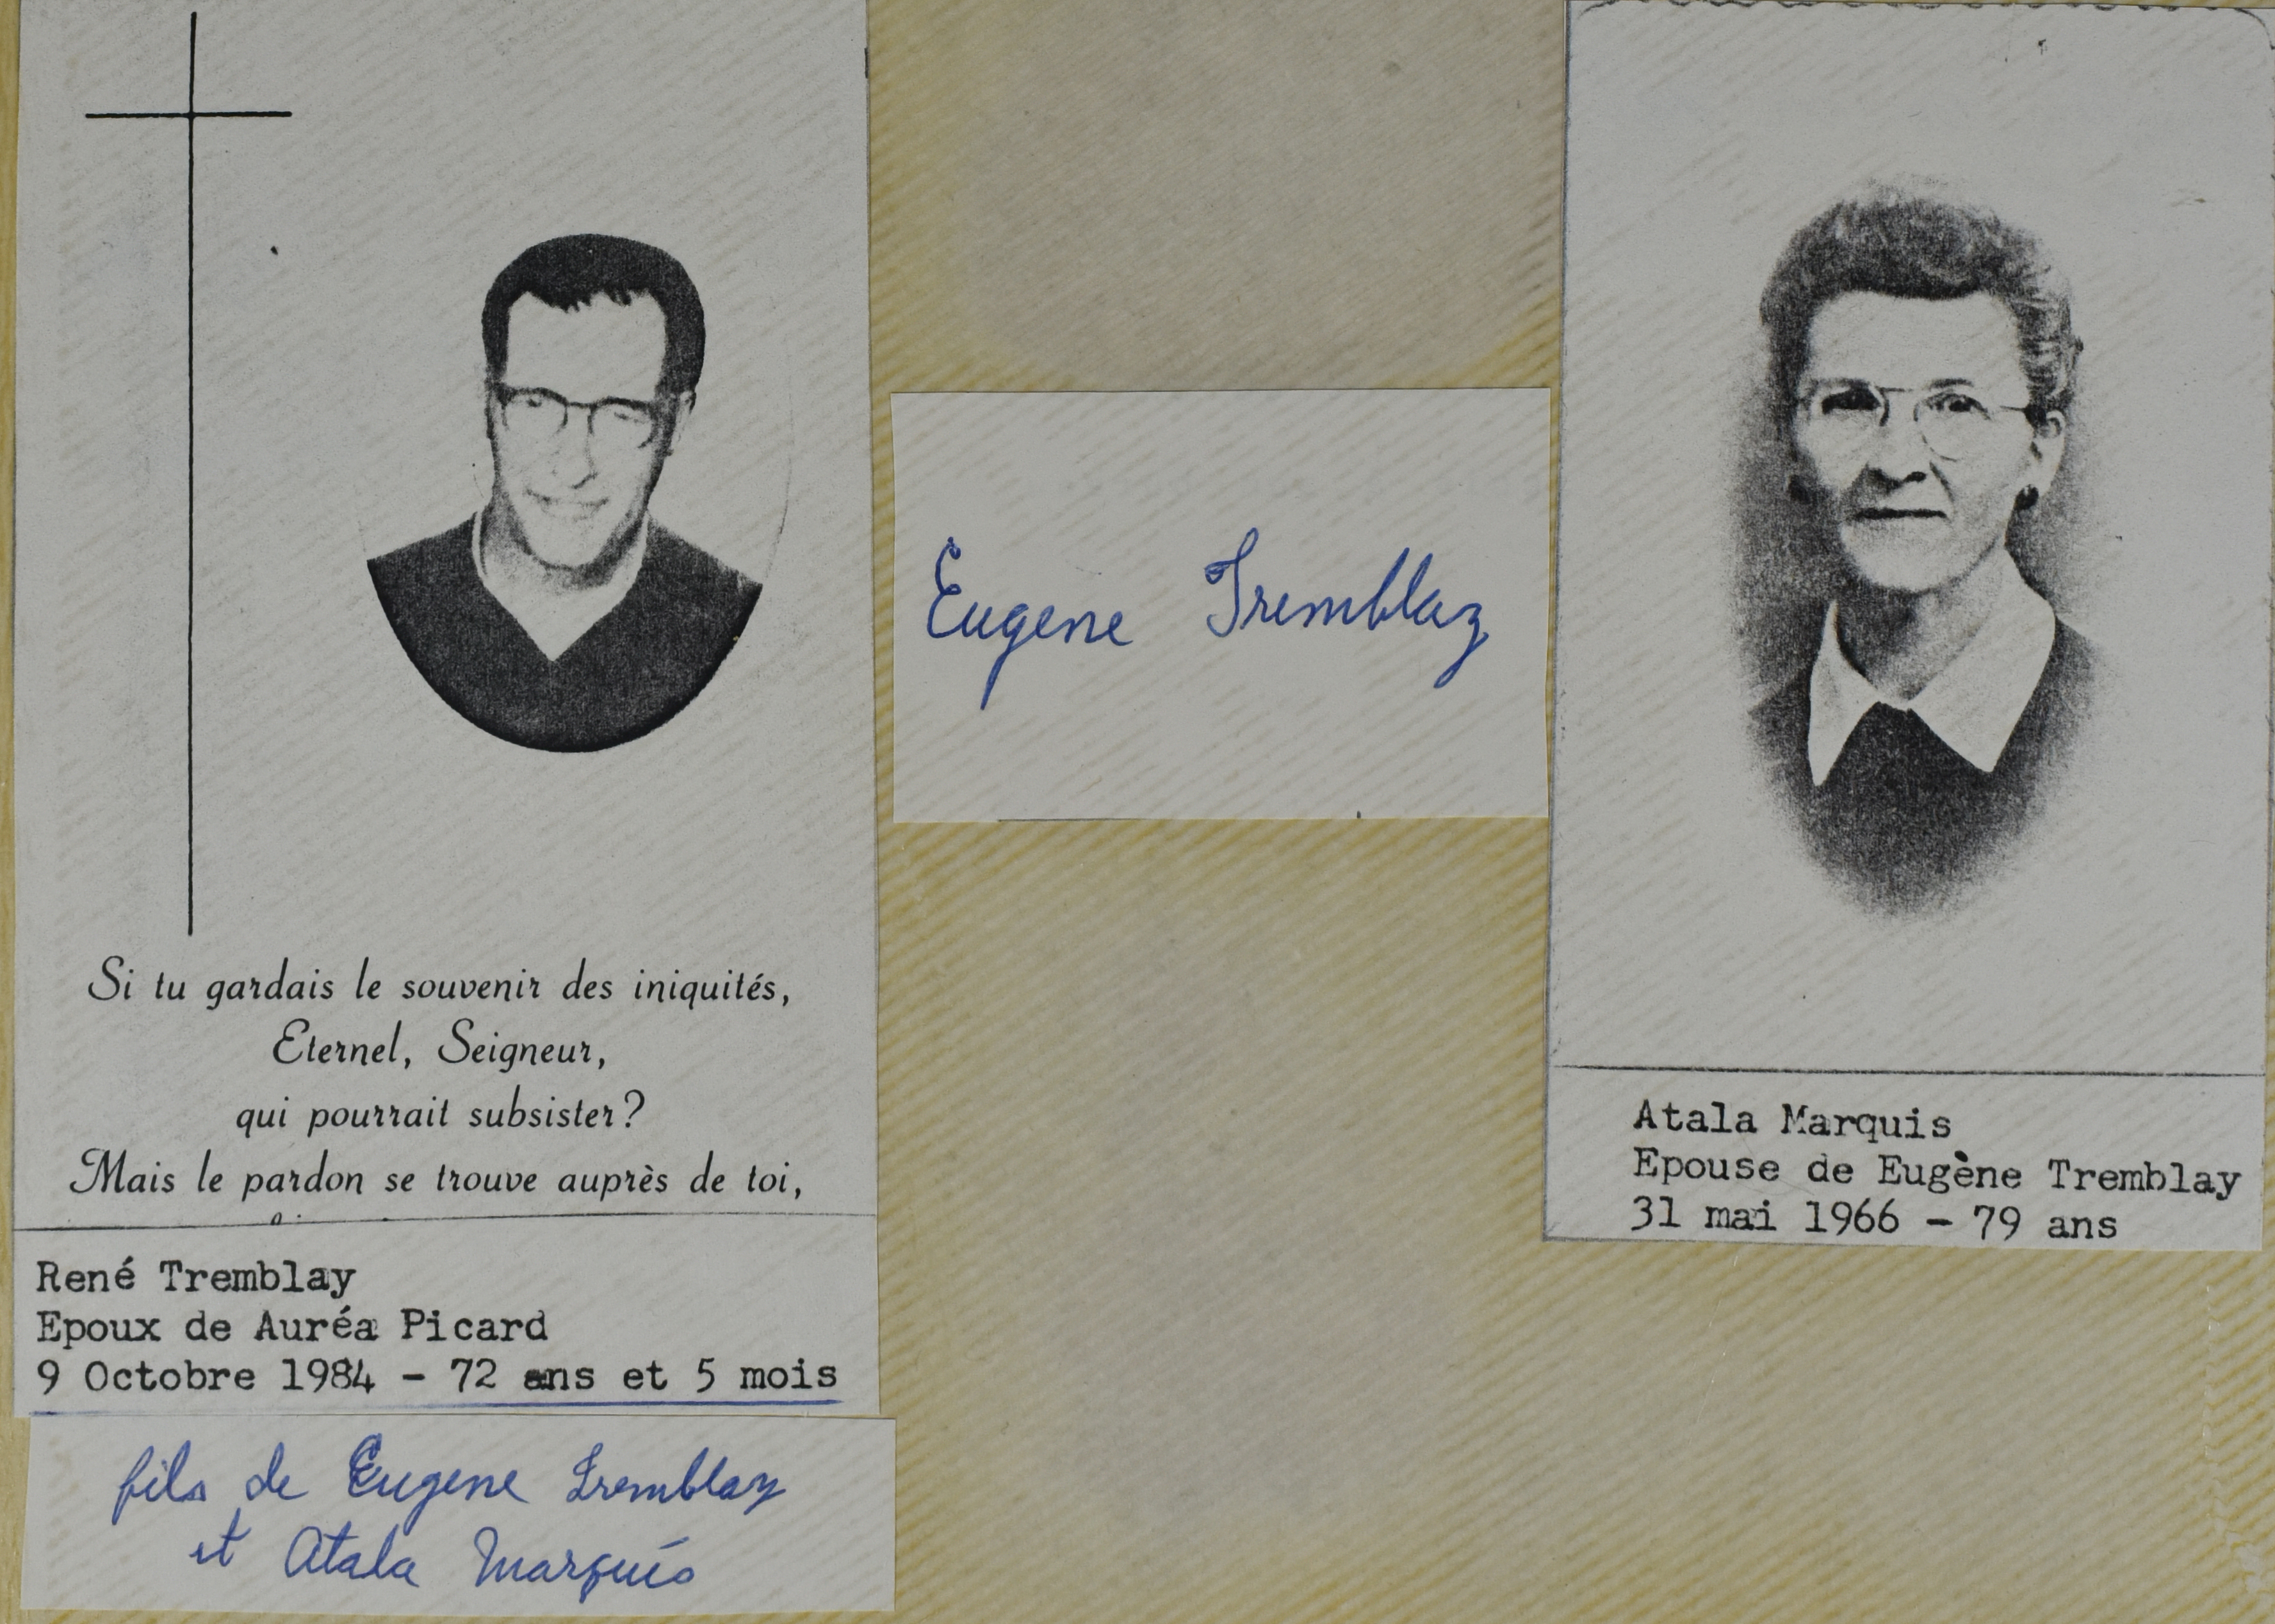 Si tu gardais le souvenir des iniquités,
Eternel, Seigneur,
qui pourrait subsister?
Mais le pardon se trouve auprès de toi,
René Tremblay
Epoux de Auréa Picard
9 Octobre 1984 - 72 ans et 5 mois
fils de Eugene Tremblay
et Atala Marquis
Eugene Tremblay
Atala Marquis
Epouse de Eugène Tremblay
31 mai 1966 - 79 ans